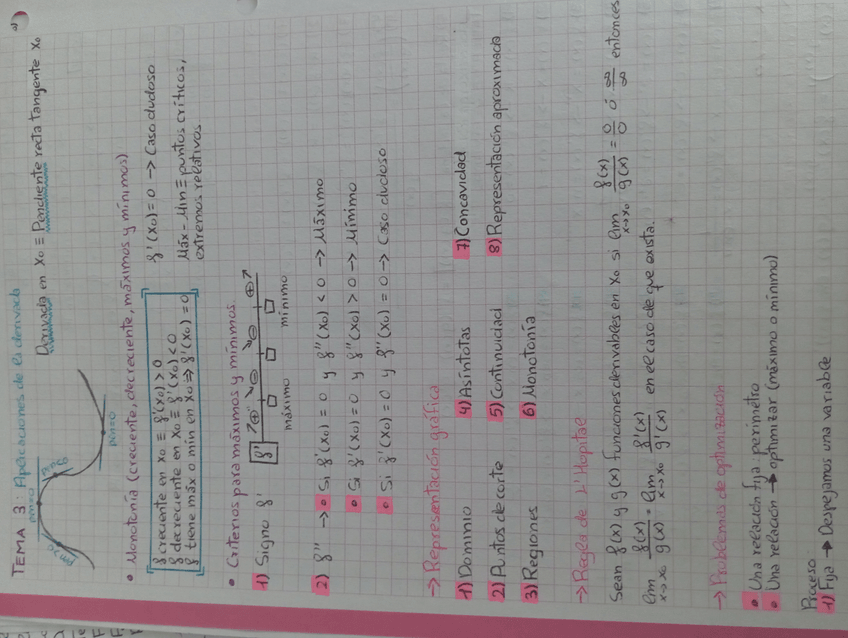 TEMA 3: Aplicaciones de la derivada
2)
Derivada en x₀ ≡ Pendiente recta tangente x₀
pm=0
pm>0
pm<0
pm=0
• Monotonía (creciente, decreciente, máximos y mínimos)
f creciente en x₀ ≡ f'(x₀) > 0
f decreciente en x₀ ≡ f'(x₀) < 0
f tiene máx o mín en x₀ ⇒ f'(x₀) = 0
f'(x₀) = 0 → Caso dudoso
Máx - Mín ≡ puntos críticos,
extremos relativos
• Criterios para máximos y mínimos
1) Signo f'
f' ↗⊕ ↘⊖ ↘⊖ ⊕↗
máximo mínimo
2) f'' → • Si f'(x₀) = 0 y f''(x₀) < 0 → Máximo
• Si f'(x₀) = 0 y f''(x₀) > 0 → Mínimo
• Si f'(x₀) = 0 y f''(x₀) = 0 → Caso dudoso
→ Representación gráfica
1) Dominio 4) Asíntotas 7) Concavidad
2) Puntos de corte 5) Continuidad 8) Representación aproximada
3) Regiones 6) Monotonía
→ Regla de L'Hôpital
Sean f(x) y g(x) funciones derivables en x₀ si lim x→x₀ f(x)/g(x) = 0/0 ó ∞/∞ entonces
lim x→x₀ f(x)/g(x) = lim x→x₀ f'(x)/g'(x) en el caso de que exista.
→ Problemas de optimización
• Una relación fija: perímetro
• Una relación → optimizar (máximo o mínimo)
Proceso
1) Fija → Despejamos una variable